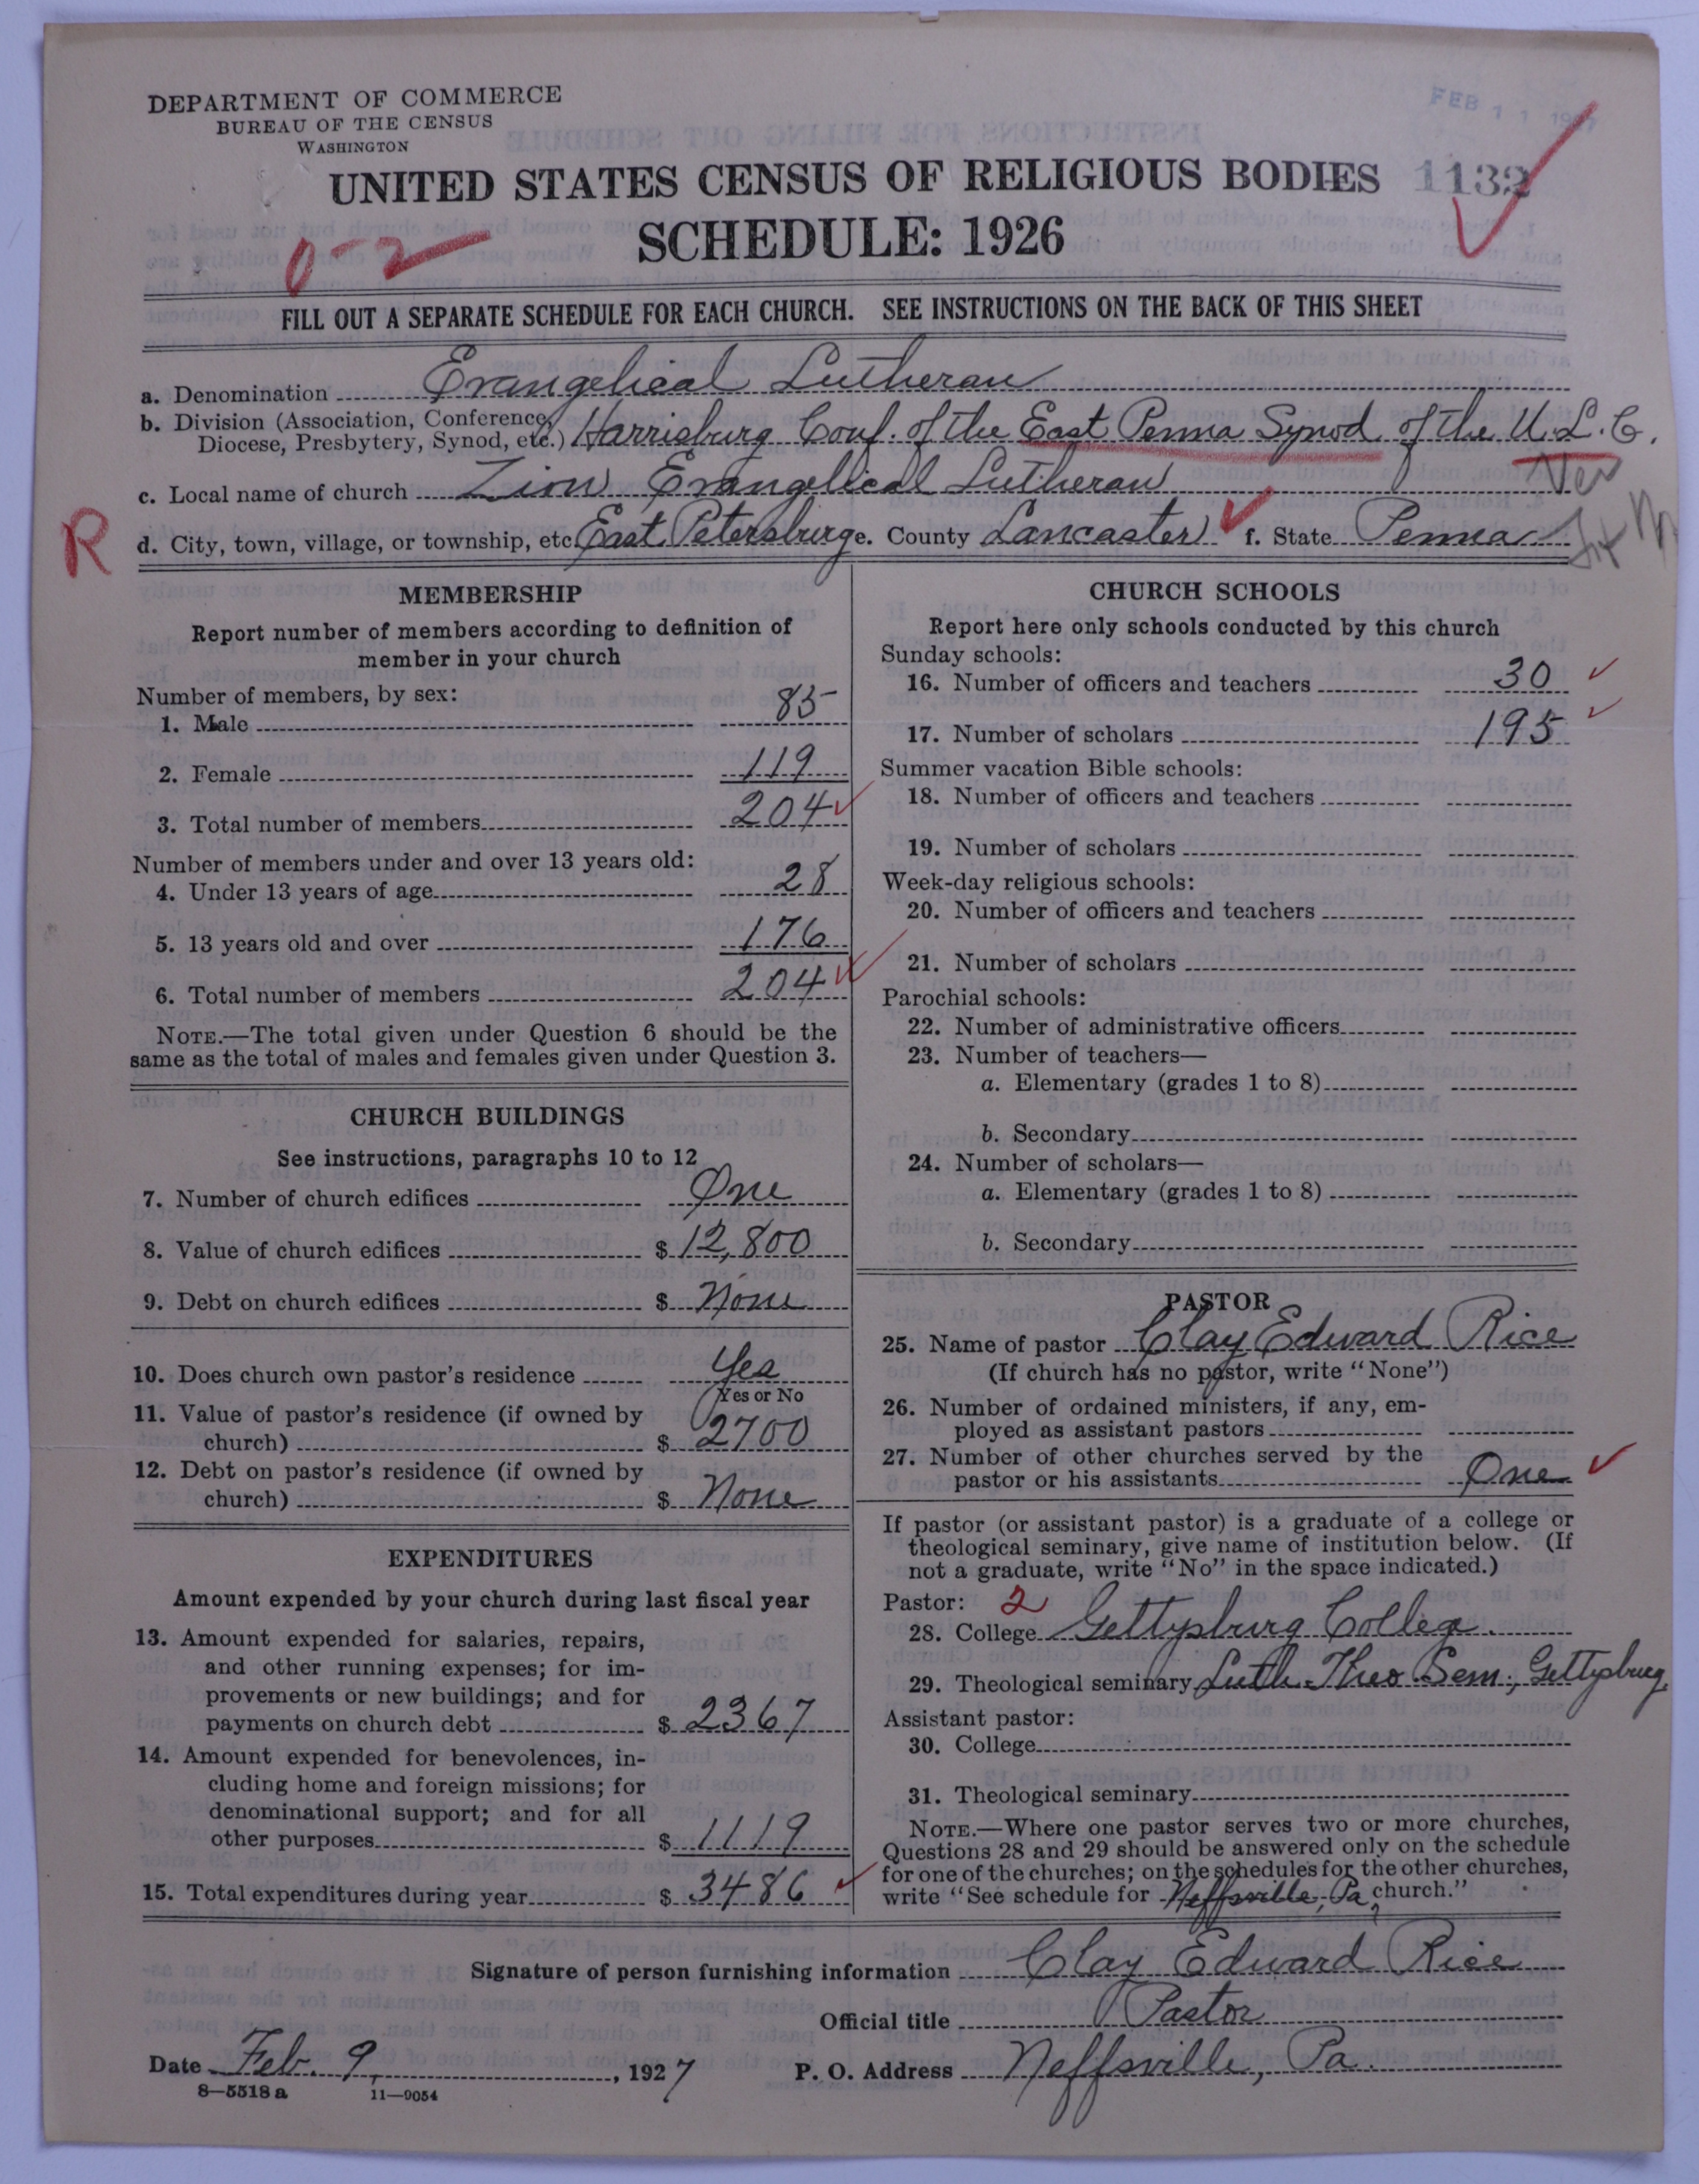 DEPARTMENT OF COMMERCE
BUREAU OF THE CENSUS
WASHINGTON
FEB 11 1927
UNITED STATES CENSUS OF RELIGIOUS BODIES
1132
SCHEDULE: 1926
0-2
FILL OUT A SEPARATE SCHEDULE FOR EACH CHURCH. SEE INSTRUCTIONS ON THE BACK OF THIS SHEET
a. Denomination Evangelical Lutheran
b. Division (Association, Conference,
Diocese, Presbytery, Synod, etc.) Harrisburg Conf. of the East Penna Synod of the U.L.C.
c. Local name of church Zion Evangelical Lutheran
Ver
R
d. City, town, village, or township, etc. East Petersburg e. County Lancaster f. State Penna
MEMBERSHIP
Report number of members according to definition of
member in your church
Number of members, by sex:
1. Male 85
2. Female 119
3. Total number of members 204
Number of members under and over 13 years old:
4. Under 13 years of age 28
5. 13 years old and over 176
6. Total number of members 204
NOTE.—The total given under Question 6 should be the
same as the total of males and females given under Question 3.
CHURCH BUILDINGS
See instructions, paragraphs 10 to 12
7. Number of church edifices One
8. Value of church edifices $ 12,800
9. Debt on church edifices $ None
10. Does church own pastor's residence Yes
Yes or No
11. Value of pastor's residence (if owned by
church) $ 2700
12. Debt on pastor's residence (if owned by
church) $ None
EXPENDITURES
Amount expended by your church during last fiscal year
13. Amount expended for salaries, repairs,
and other running expenses; for im-
provements or new buildings; and for
payments on church debt $ 2367
14. Amount expended for benevolences, in-
cluding home and foreign missions; for
denominational support; and for all
other purposes $ 1119
15. Total expenditures during year $ 3486
CHURCH SCHOOLS
Report here only schools conducted by this church
Sunday schools:
16. Number of officers and teachers 30
17. Number of scholars 195
Summer vacation Bible schools:
18. Number of officers and teachers
19. Number of scholars
Week-day religious schools:
20. Number of officers and teachers
21. Number of scholars
Parochial schools:
22. Number of administrative officers
23. Number of teachers—
a. Elementary (grades 1 to 8)
b. Secondary
24. Number of scholars—
a. Elementary (grades 1 to 8)
b. Secondary
PASTOR
25. Name of pastor Clay Edward Rice
(If church has no pastor, write "None")
26. Number of ordained ministers, if any, em-
ployed as assistant pastors
27. Number of other churches served by the
pastor or his assistants One
If pastor (or assistant pastor) is a graduate of a college or
theological seminary, give name of institution below. (If
not a graduate, write "No" in the space indicated.)
Pastor: 2
28. College Gettysburg College
29. Theological seminary Luth. Theo Sem., Gettysburg
Assistant pastor:
30. College
31. Theological seminary
NOTE.—Where one pastor serves two or more churches,
Questions 28 and 29 should be answered only on the schedule
for one of the churches; on the schedules for the other churches,
write "See schedule for Neffsville, Pa church."
Signature of person furnishing information Clay Edward Rice
Official title Pastor
Date Feb. 9, 1927 P. O. Address Neffsville, Pa.
8—5518 a 11—9054